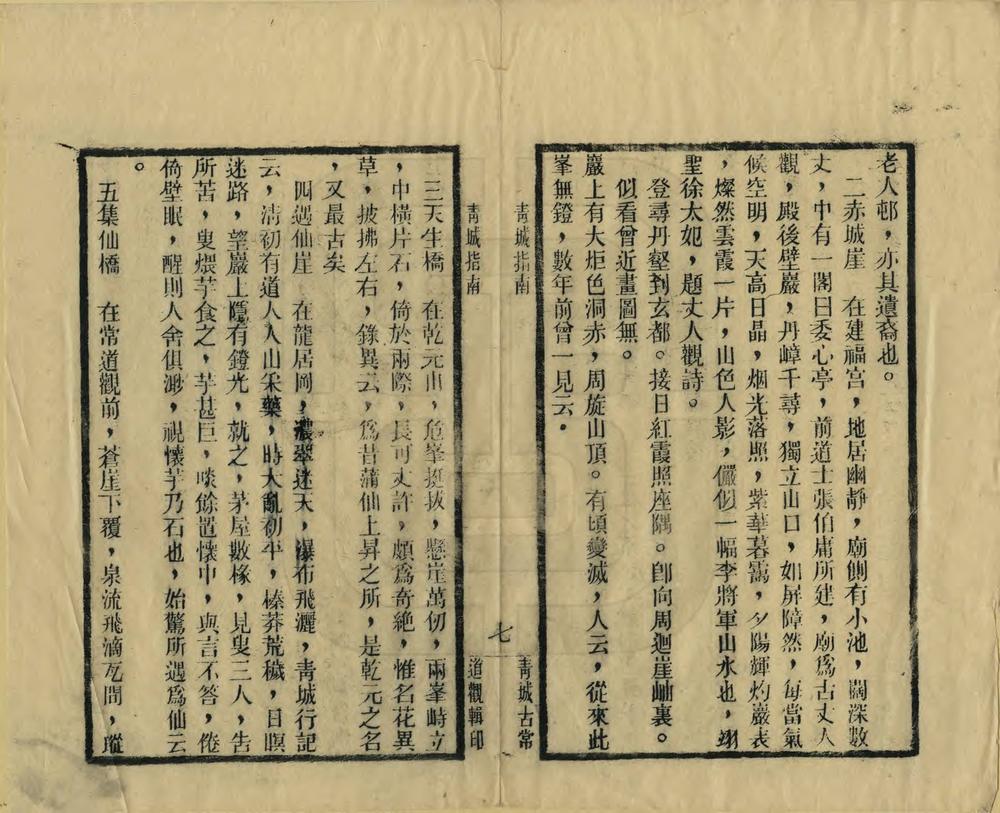 老人邨，亦其遺裔也。
二赤城崖　在建福宮，地居幽靜，廟側有小池，闊深數
丈，中有一閣曰委心亭，前道士張伯庸所建，廟爲古丈人
觀，殿後壁巖，丹嶂千尋，獨立山口，如屏障然，每當氣
候空明，天高日晶，烟光落照，紫華暮靄，夕陽輝灼巖表
，燦然雲霞一片，山色人影，儼似一幅李將軍山水也，翊
聖徐太妃，題丈人觀詩。
登尋丹壑到玄都。接日紅霞照座隅。卽向周迴崖岫裏。
似看曾近畫圖無。
巖上有大炬色洞赤，周旋山頂。有頃變滅，人云，從來此
峯無鐙，數年前曾一見云。
青城指南
青城古常
七
青城指南
道觀輯印
三天生橋　在乾元山，危峯挺拔，懸崖萬仞，兩峯峙立
，中橫片石，倚於兩際，長可丈許，頗爲奇絶，惟名花異
草，披拂左右，錄異云，爲昔蒲仙上昇之所，是乾元之名
，又最古矣
四遇仙崖　在龍居岡，濃翠迷天，瀑布飛灑，靑城行記
云，淸初有道人入山采藥，時大亂初平，榛莽荒穢，日暝
迷路，望巖上隱有鐙光，就之，茅屋數椽，見叟三人，告
所苦，叟煨芋食之，芋甚巨，啖餘置懷中，與言不答，倦
倚壁眠，醒則人舍俱渺，視懷芋乃石也，始驚所遇爲仙云
。
五集仙橋　在常道觀前，蒼崖下覆，泉流飛滴瓦間，蹤